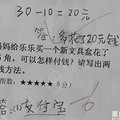 30-10=20元
答:多找了20元钱
妈妈给乐乐买一个新文具盒花了
角,可以怎样付钱?请写出两
找方法。
指数:★★★★★ 8分)
答:以支付宝